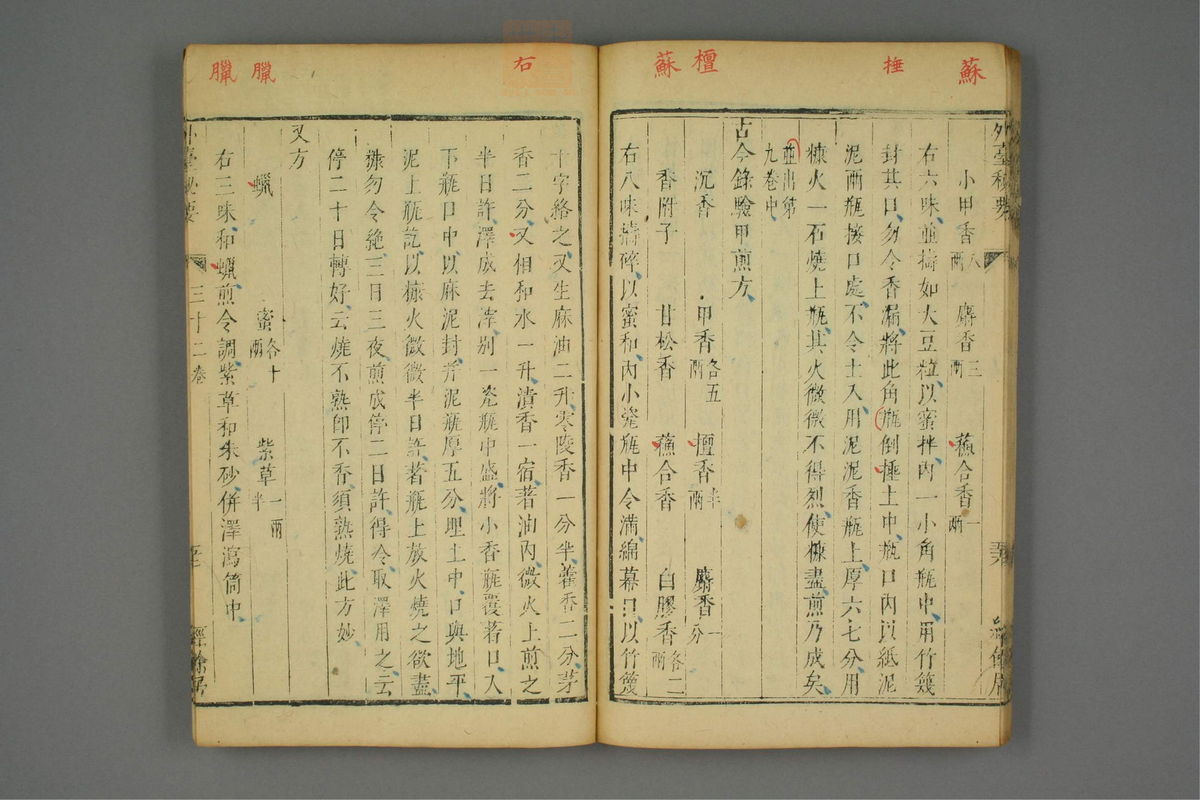 蘇
捶
檀
蘇
右
臘
臘
小甲香八兩 麝香三兩 蘓合香一兩
右六味並擣如大豆粒以蜜拌內一小角瓶中用竹篾
封其口勿令香漏將此角瓶倒捶土中瓶口內以紙泥
泥兩瓶接口處不令土入用泥泥香瓶上厚六七分用
糠火一石燒上瓶其火微微不得烈使糠盡煎乃成矣
並出第九卷中
古今錄驗甲煎方
沉香 甲香各五兩 檀香半兩 麝香一分
香附子 甘松香 蘓合香 白膠香各二兩
右八味擣碎以蜜和內小瓷瓶中令滿綿幕口以竹篾
十字絡之又生麻油二升零陵香一分半藿香二分茅
香二分又相和水一升漬香一宿著油內微火上煎之
半日許澤成去滓別一瓷瓶中盛將小香瓶覆著口入
下瓶口中以麻泥封并泥瓶厚五分埋土中口與地平
泥上瓶訖以糠火微微半日許著瓶上放火燒之欲盡
糠勿令絶三日三夜煎成停二日許得令取澤用之云
停二十日轉好云燒不熟即不香須熟燒此方妙
又方
蠟 蜜各十兩 紫草一兩半
右三味和蠟煎令調紫草和朱砂併澤瀉筒中
外臺秘要 三十二卷 經餘居